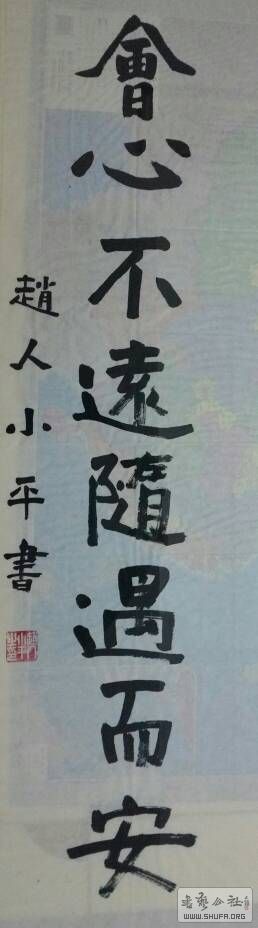 會心不遠隨遇而安
趙人小平書
書藝公社
WWW.SHUFA.ORG